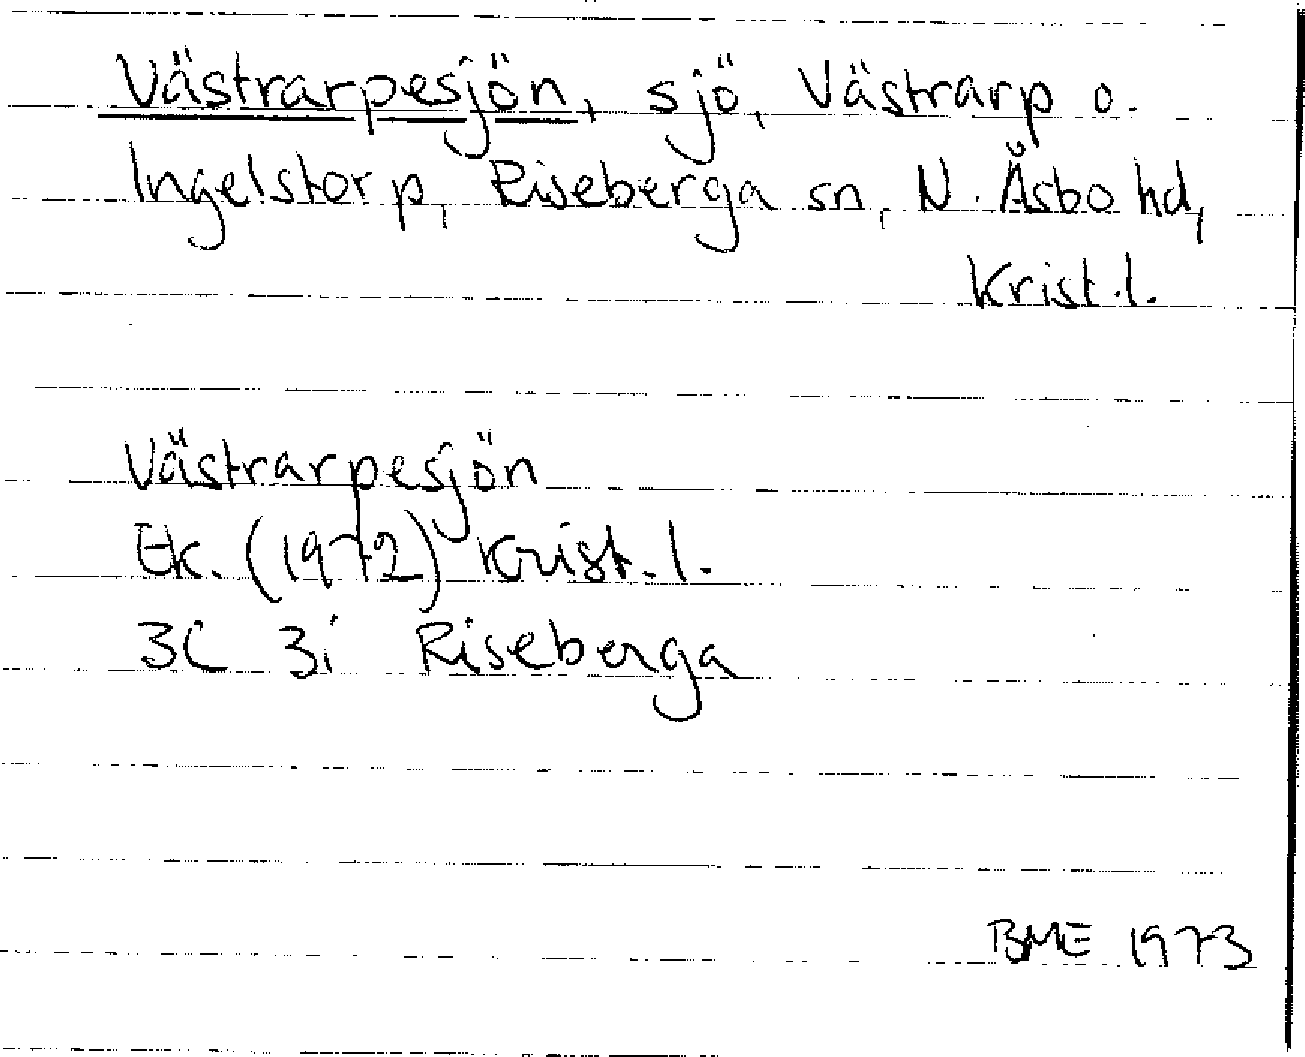 Västrarpesjön, sjö, Västrarp o.
Ingelstorp, Riseberga sn, N. Åsbo hd,
Krist.l.
Västrarpesjön
Ek. (1972) Krist.l.
3C 3i Riseberga
BME 1973